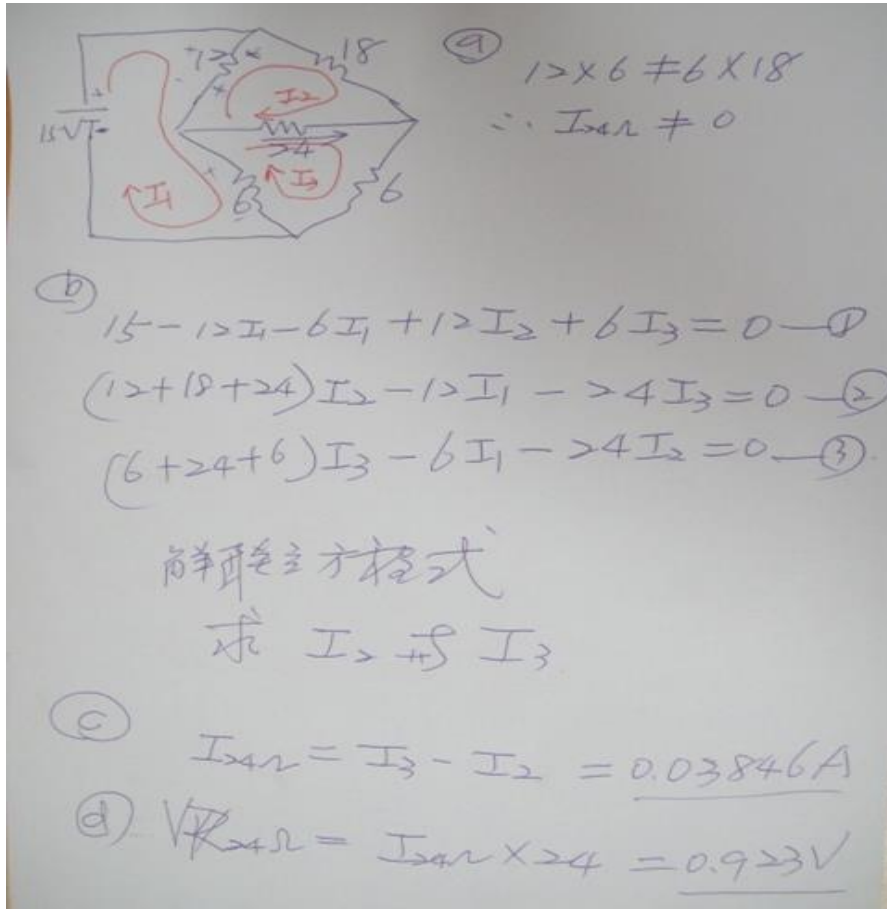 12
18
I2
15V
24
I1
6
I3
6
ⓐ
12×6≠6×18
∴ I24Ω ≠ 0
ⓑ
15-12I1-6I1+12I2+6I3=0—①
(12+18+24)I2-12I1-24I3=0—②
(6+24+6)I3-6I1-24I2=0—③
解聯立方程式
求 I2 与 I3
ⓒ
I24Ω = I3 - I2 = 0.03846A
ⓓ V24Ω = I24Ω×24 = 0.923V